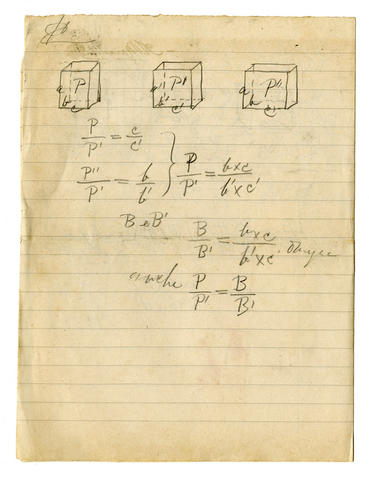 P P' P''
a b c a b' c' a b c'
P/P' = c/c'
P''/P' = b/b' } P/P' = b×c/b'×c'
B e B' B/B' = b×c/b'×c'
P/P' = B/B'